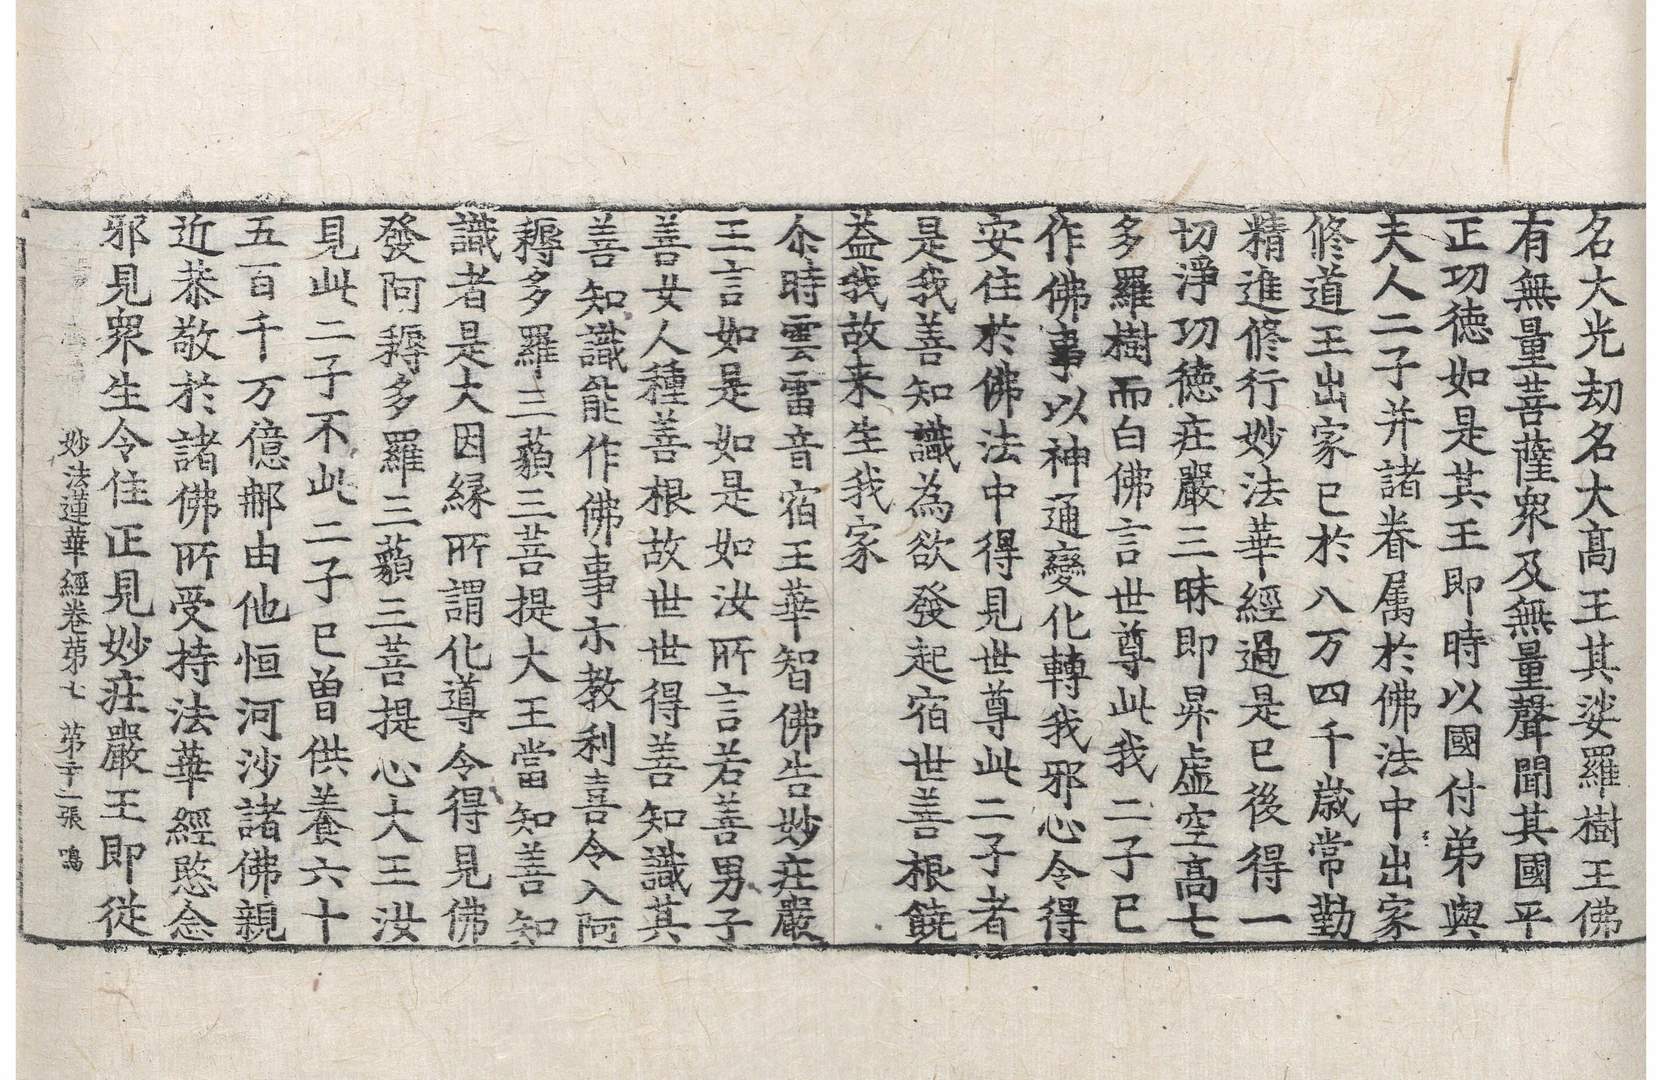 名大光劫名大髙王其娑羅樹王佛
有無量菩薩衆及無量聲聞其國平
正功徳如是其王即時以國付弟與
夫人二子并諸眷属於佛法中出家
修道王出家已於八万四千歳常勤
精進修行妙法華經過是已後得一
切淨功徳荘嚴三昧即昇虚空髙七
多羅樹而白佛言世尊此我二子已
作佛事以神通變化轉我邪心令得
安住於佛法中得見世尊此二子者
是我善知識為欲發起宿世善根饒
益我故来生我家
尒時雲雷音宿王華智佛告妙荘嚴
王言如是如是如汝所言若善男子
善女人種善根故世世得善知識其
善知識能作佛事示教利喜令入阿
耨多羅三藐三菩提大王當知善知
識者是大因縁所謂化導令得見佛
發阿耨多羅三藐三菩提心大王汝
見此二子不此二子已曽供養六十
五百千万億那由他恒河沙諸佛親
近恭敬於諸佛所受持法華經愍念
邪見衆生令住正見妙荘嚴王即従
妙法蓮華經巻苐七 苐十二張 鳴